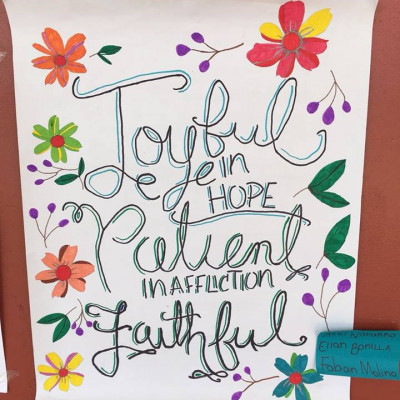 Joyful
in
HOPE
Patient
IN AFFLICTION
Faithful
Elian BONILLA
Fabian Molina